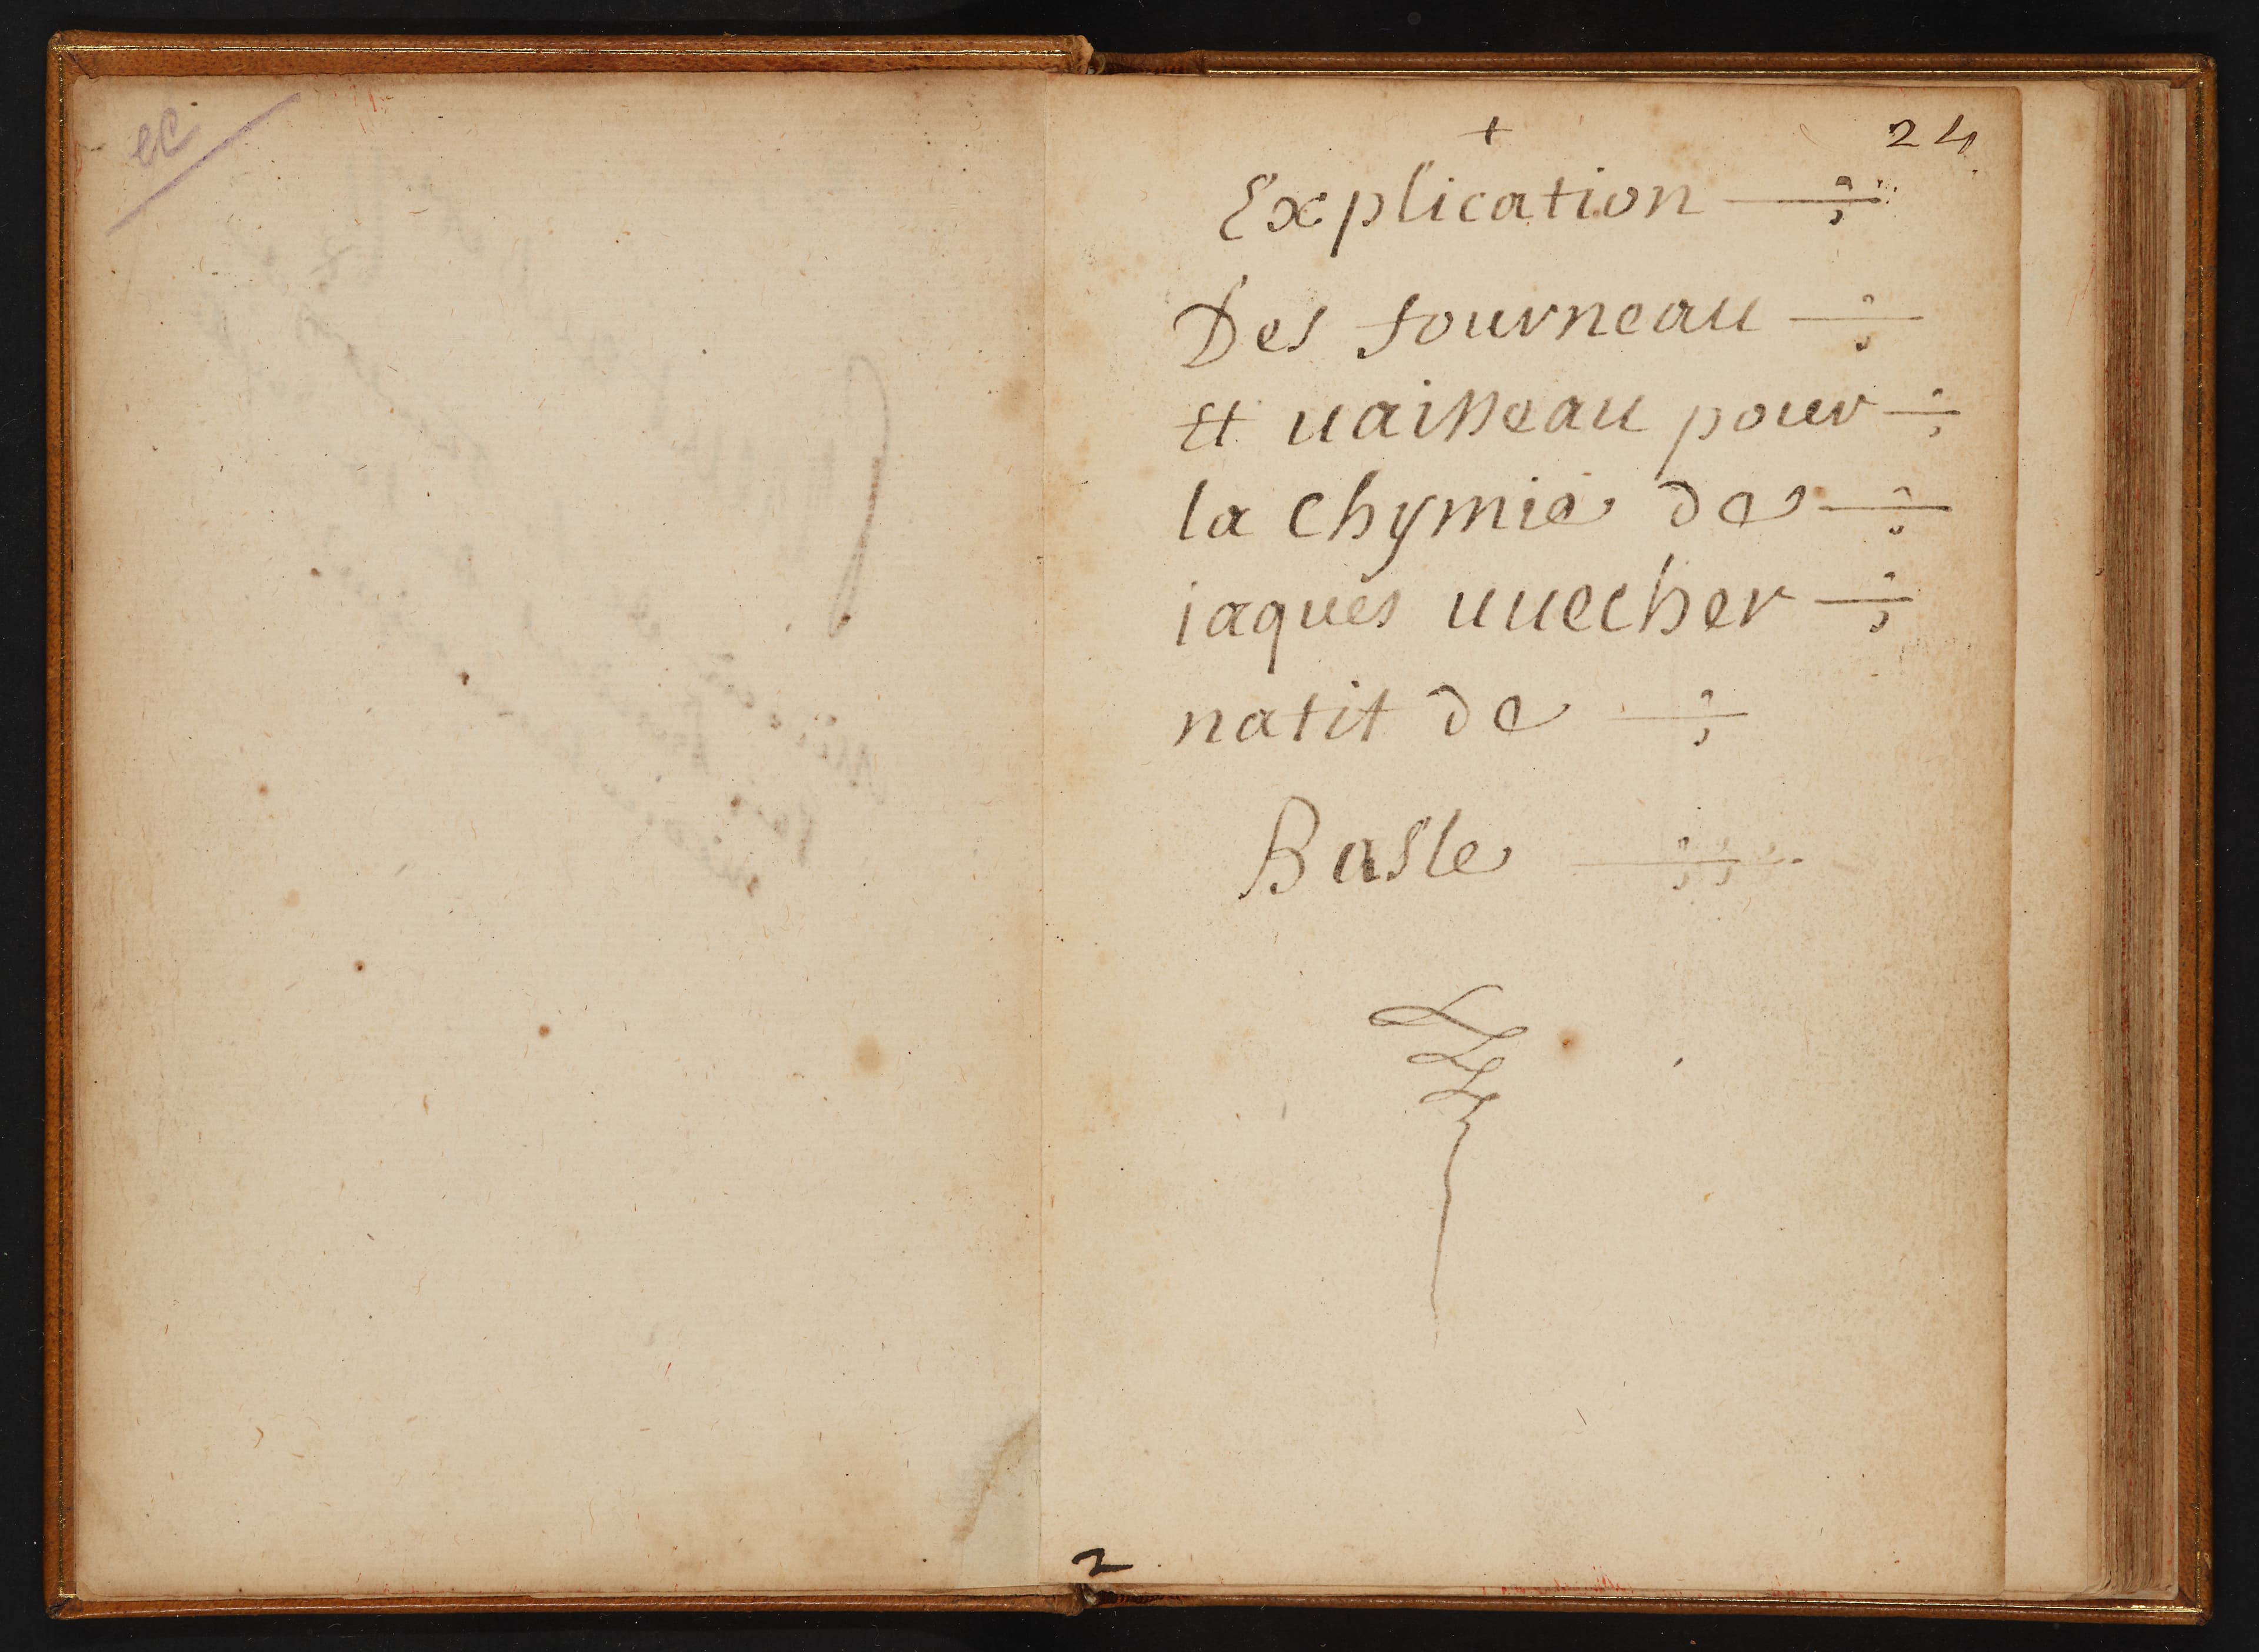 ec
+
24
Explication
Des fourneau
Et uaisseau pour
la Chymie de
iaques uuecher
natit de
Basle
2